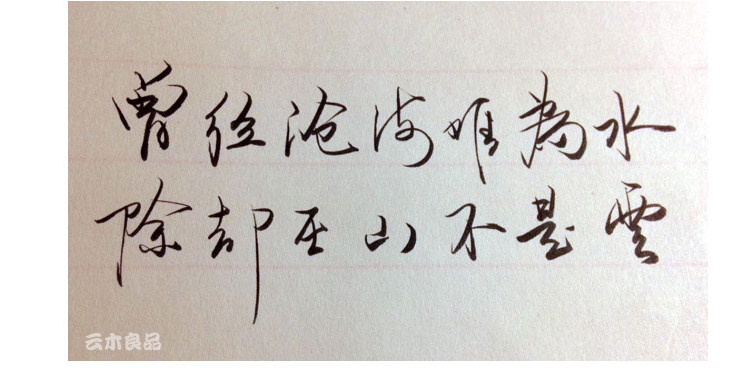 曾经沧海难为水
除却巫山不是雲
云木良品